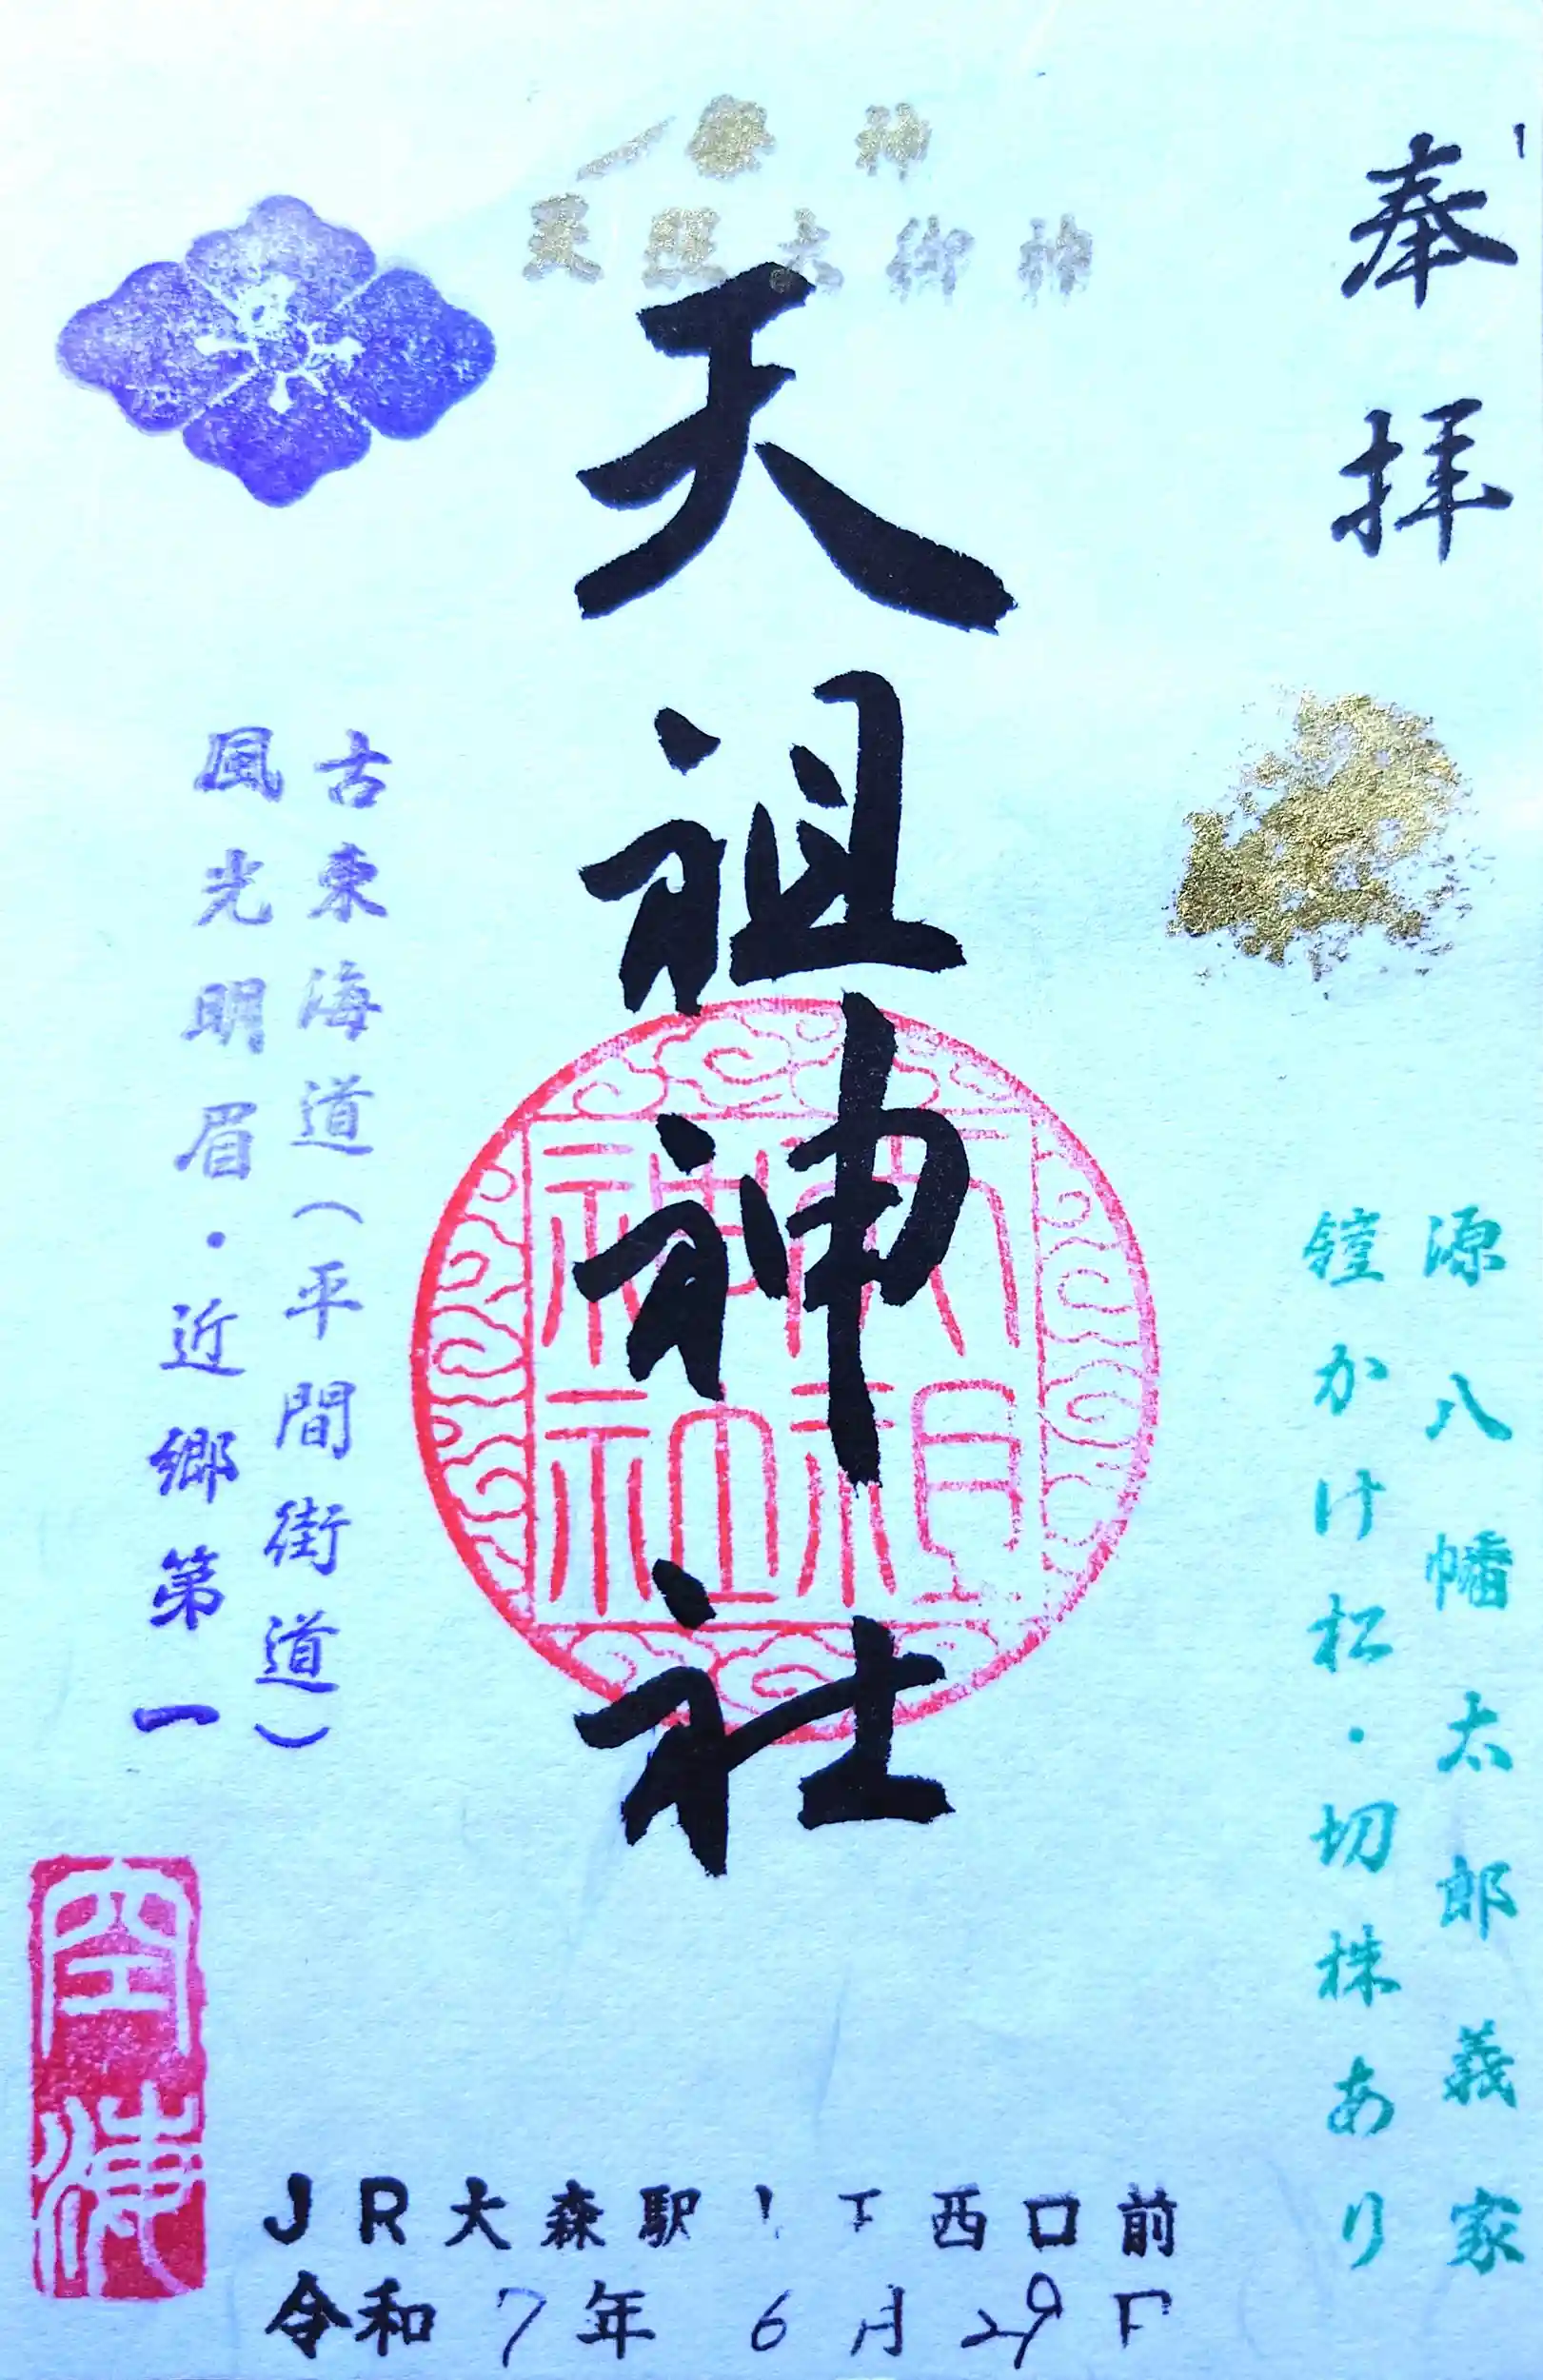 奉拝
源八幡太郎義家
鎧かけ松・切株あり
祭神
天照大御神
天祖神社
天祖神社
古東海道(平間街道)
風光明眉・近郷第一
JR大森駅 西口前
令和7年6月29日